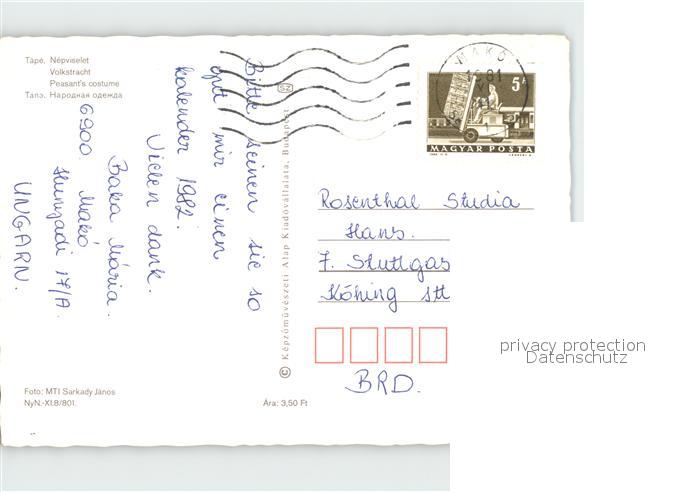 Tápé, Népviselet
Volkstracht
Peasant's costume
Тапэ. Народная одежда
Bitte seinen sie so
gutt mir einen
kalender 1982.
Vielen dank.
Baka Mária.
6900. Makó
Hunyadi 17/A.
UNGARN.
Foto: MTI Sarkady János
NyN.-XI.8/801.
Ára: 3,50 Ft
© Képzőművészeti Alap Kiadóvállalata, Budapest
SZ
MAKÓ
1981
5 Ft
MAGYAR POSTA
Rosenthal Studia
Hans.
7. Stuttgas
Köhing stt
BRD.
privacy protection
Datenschutz